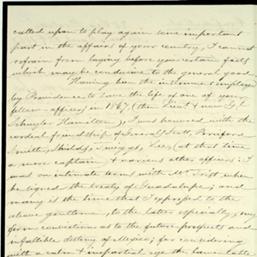 called upon to play again some important
part in the affairs of your country, I cannot
refrain from laying before you certain facts
which may be conducive to the general good.
Having been the instrument employed
by Providence to save the life of one of your
fellow officers in 1847, (then Lieut
Schuyler Hamilton), I was honored with the
cordial friendship of General Scott,
Smith, Shields, Twiggs, Lee, (at that time
a mere captain) & various other officers: I
was on intimate terms with Mr Trist when
he signed the treaty of Guadalupe; and
many is the time that I exposed to the
above gentlemen, to the latter especially, my
firm convictions as to the future prospects and
infallible destiny of Mexico; for considering
with a calm & impartial eye the